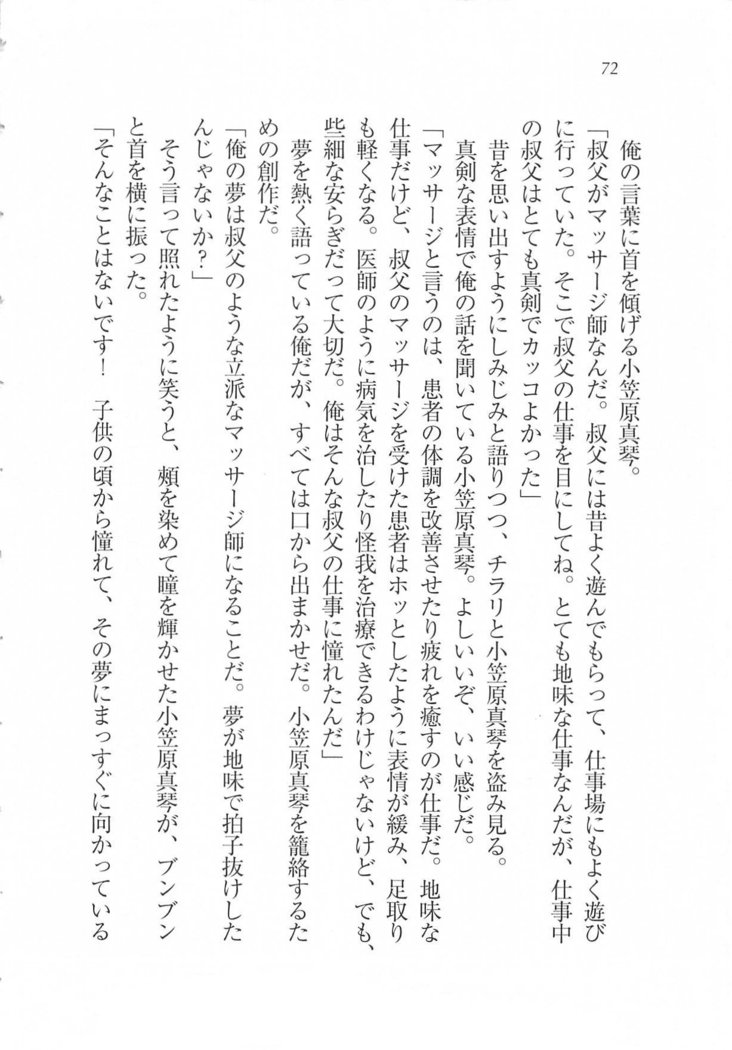 72
俺の言葉に首を傾げる小笠原真琴。
「叔父がマッサージ師なんだ。叔父には昔よく遊んでもらって、仕事場にもよく遊び
に行っていた。そこで叔父の仕事を目にしてね。とても地味な仕事なんだが、仕事中
の叔父はとても真剣でカッコよかった」
昔を思い出すようにしみじみと語りつつ、チラリと小笠原真琴を盗み見る。
真剣な表情で俺の話を聞いている小笠原真琴。よしいいぞ、いい感じだ。
「マッサージと言うのは、患者の体調を改善させたり疲れを癒すのが仕事だ。地味な
仕事だけど、叔父のマッサージを受けた患者はホッとしたように表情が緩み、足取り
も軽くなる。医師のように病気を治したり怪我を治療できるわけじゃないけど、でも、
些細な安らぎだって大切だ。俺はそんな叔父の仕事に憧れたんだ」
夢を熱く語っている俺だが、すべては口から出まかせだ。小笠原真琴を籠絡するた
めの創作だ。
「俺の夢は叔父のような立派なマッサージ師になることだ。夢が地味で拍子抜けした
んじゃないか？」
そう言って照れたように笑うと、頬を染めて瞳を輝かせた小笠原真琴が、ブンブン
と首を横に振った。
「そんなことはないです！　子供の頃から憧れて、その夢にまっすぐに向かっている